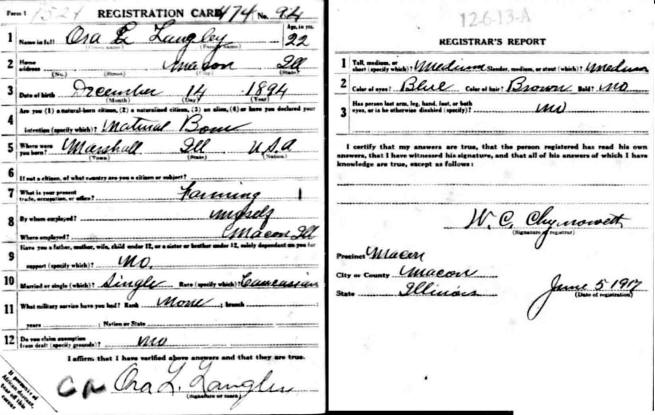 Form 1 1524 REGISTRATION CARD 474 No. 94
1 Name in full Ora L Langley Age, in yrs. 22
(Given name) (Family name)
2 Home address Macon Ill
(No.) (Street) (City) (State)
3 Date of birth December 14 1894
(Month) (Day) (Year)
4 Are you (1) a natural-born citizen, (2) a naturalized citizen, (3) an alien, (4) or have you declared your
intention (specify which)? Natural Born
5 Where were you born? Marshall Ill U.S.A
(Town) (State) (Nation)
6 If not a citizen, of what country are you a citizen or subject?
7 What is your present trade, occupation, or office? Farming 1
8 By whom employed? Myself
Where employed? Macon Ill
9 Have you a father, mother, wife, child under 12, or a sister or brother under 12, solely dependent on you for
support (specify which)? No.
10 Married or single (which)? Single Race (specify which)? Caucassian
11 What military service have you had? Rank None ; branch
years ; Nation or State
12 Do you claim exemption from draft (specify grounds)? No
I affirm that I have verified above answers and that they are true.
Ora L. Langley
(Signature or mark)
If person is of African descent, tear off this corner
12-6-13-A
REGISTRAR'S REPORT
1 Tall, medium, or short (specify which)? Medium Slender, medium, or stout (which)? Medium
2 Color of eyes? Blue Color of hair? Brown Bald? No
3 Has person lost arm, leg, hand, foot, or both eyes, or is he otherwise disabled (specify)? No
I certify that my answers are true, that the person registered has read his own
answers, that I have witnessed his signature, and that all of his answers of which I have
knowledge are true, except as follows:
W. C. Chynoweth
(Signature of registrar)
Precinct Macon
City or County Macon
State Illinois June 5 1917
(Date of registration)